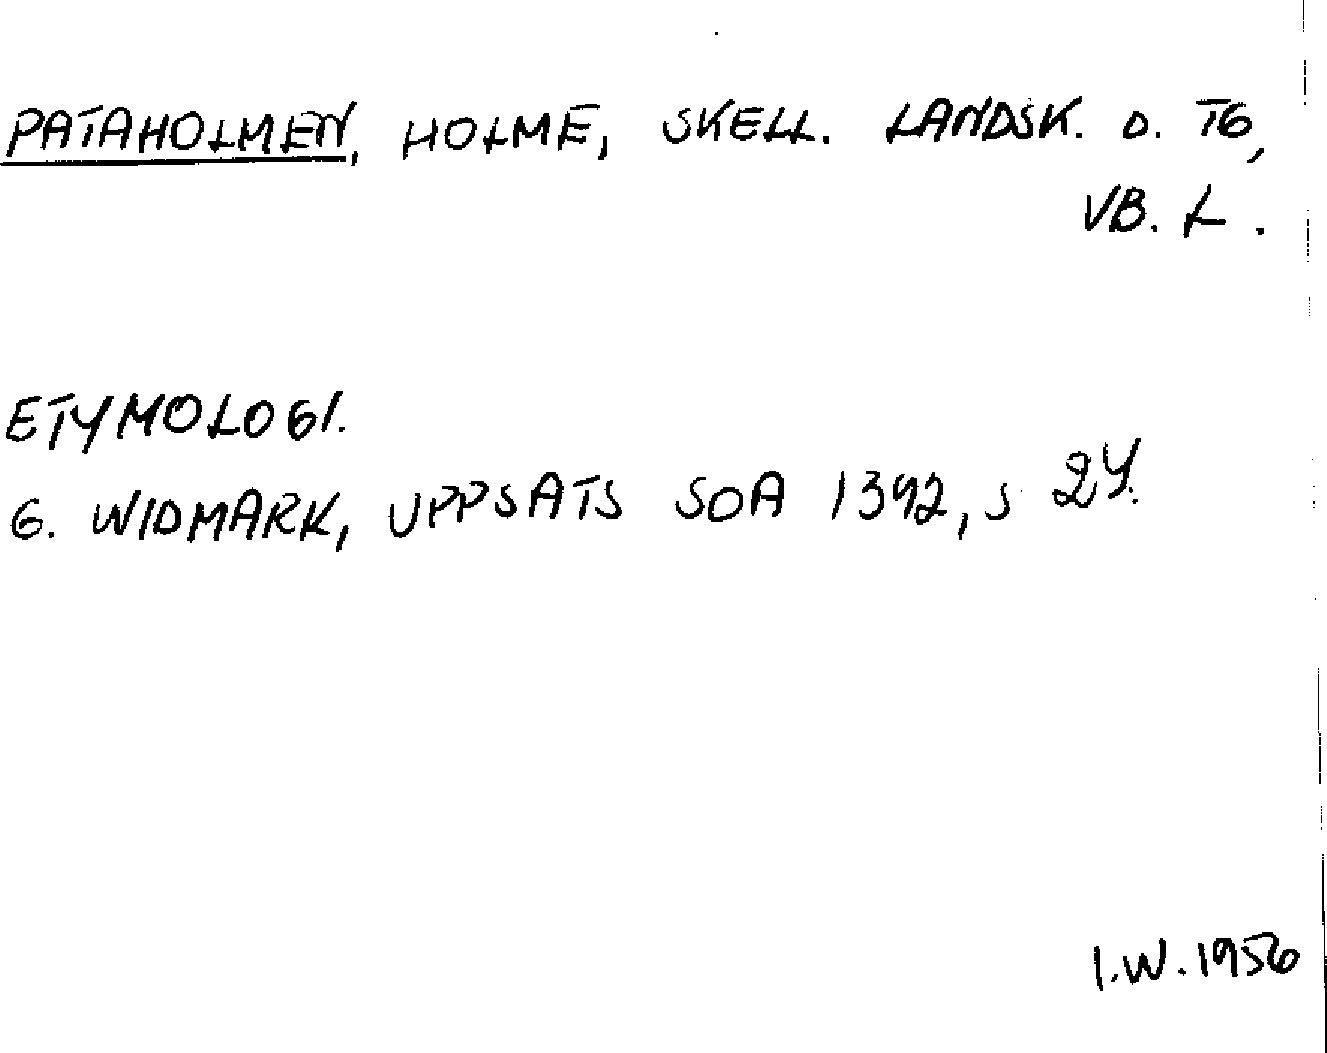 PATAHOLMEN, HOLME, SKELL. LANDSK. O. TG,
VB. L.
ETYMOLOGI.
G. WIDMARK, UPPSATS SOA 1392, S 24.
I.W. 1956